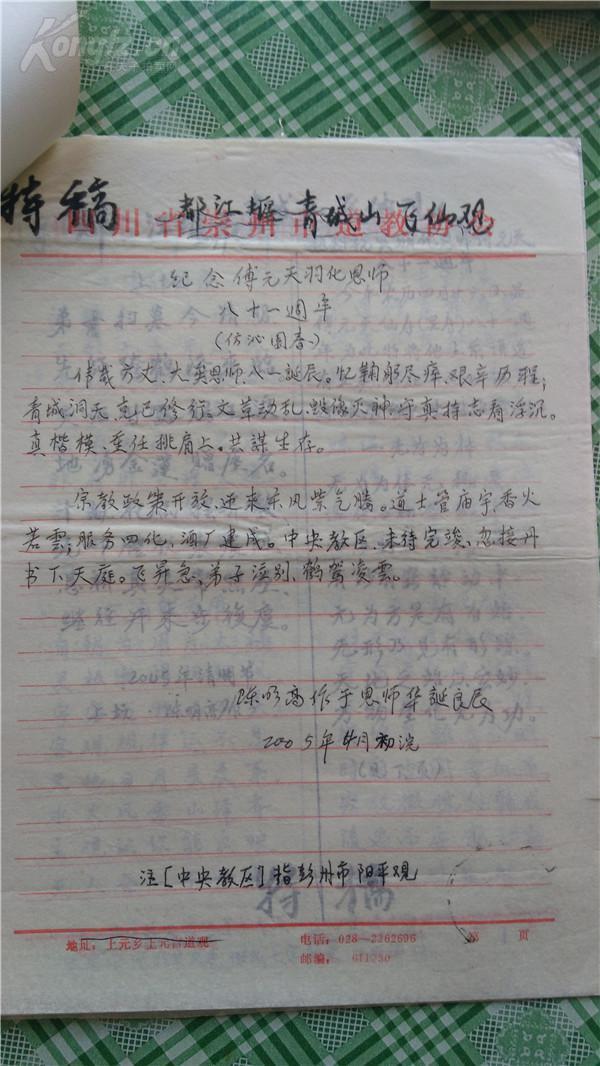 Kongfz.cn
特稿 都江堰青城山飞仙观
四川省崇州市道教协会
纪念傅元天羽化恩师
八十一週年
(仿沁园春)
伟哉方丈、大英恩师、八一誕辰。忆鞠躬尽瘁、艰辛历程;
青城洞天、克己修行、文革动乱、毁像灭神、守真持志看浮沉。
真楷模、重任挑肩上。共謀生存。
宗教政策开放、迎来东风紫气腾。道士管庙宇、香火
若雲;服务四化、酒厂建成。中央教区、未待完竣、忽接丹
书下天庭。飞昇急、弟子泣别、鹤驾凌雲。
陈明高作于恩师华誕良辰
2005年4月初浣
注[中央教区]指彭州市阳平观
地址:上元乡上元宫道观 电话:028-2262696 第 页
邮编: 611230